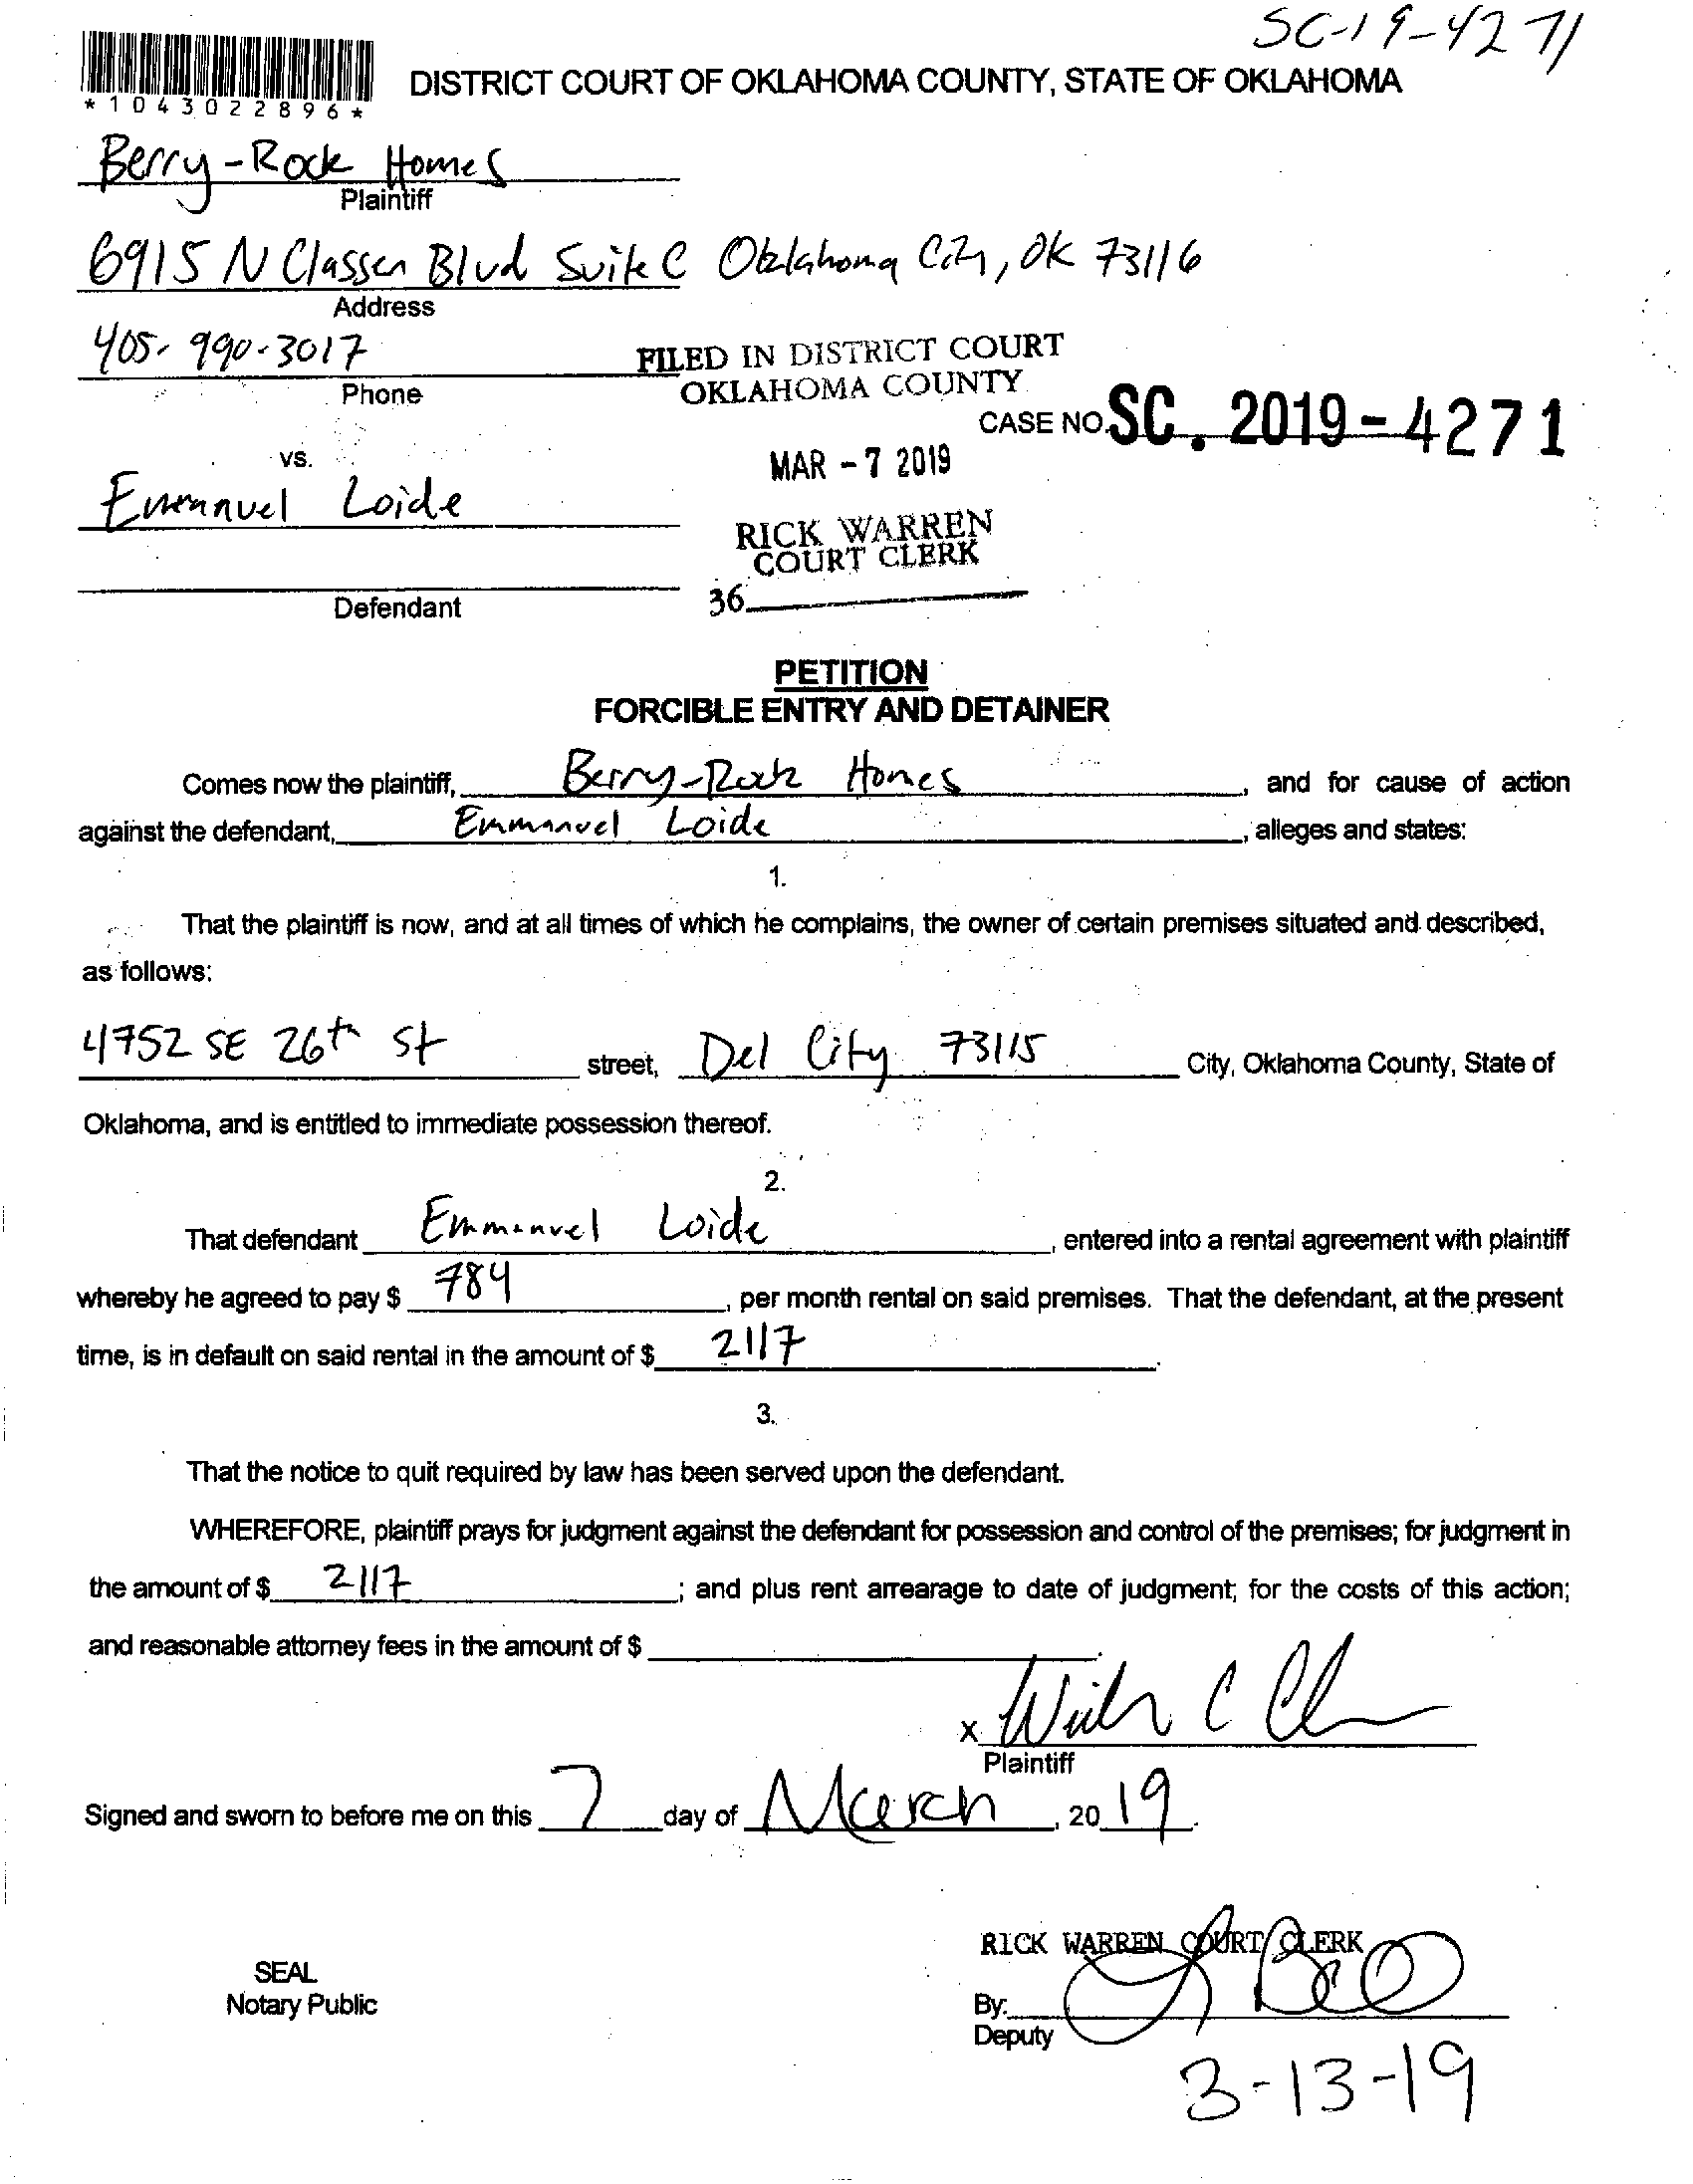 SC-19-4271
*1043022896*
DISTRICT COURT OF OKLAHOMA COUNTY, STATE OF OKLAHOMA
Berry-Rock Homes
Plaintiff
6915 N Classen Blvd Suite C Oklahoma City, OK 73116
Address
405-990-3017
Phone
FILED IN DISTRICT COURT
OKLAHOMA COUNTY
CASE NO. SC. 2019-4271
MAR -7 2019
vs.
Emmanuel Loide
RICK WARREN
COURT CLERK
36
Defendant
PETITION
FORCIBLE ENTRY AND DETAINER
Comes now the plaintiff, Berry-Rock Homes, and for cause of action
against the defendant, Emmanuel Loide, alleges and states:
1.
That the plaintiff is now, and at all times of which he complains, the owner of certain premises situated and described,
as follows:
4752 SE 26th St street, Del City 73115 City, Oklahoma County, State of
Oklahoma, and is entitled to immediate possession thereof.
2.
That defendant Emmanuel Loide, entered into a rental agreement with plaintiff
whereby he agreed to pay $ 784, per month rental on said premises. That the defendant, at the present
time, is in default on said rental in the amount of $ 2117.
3.
That the notice to quit required by law has been served upon the defendant.
WHEREFORE, plaintiff prays for judgment against the defendant for possession and control of the premises; for judgment in
the amount of $ 2117; and plus rent arrearage to date of judgment; for the costs of this action;
and reasonable attorney fees in the amount of $
x
Plaintiff
Signed and sworn to before me on this 7 day of March, 2019.
RICK WARREN COURT CLERK
SEAL
Notary Public
By:
Deputy
3-13-19